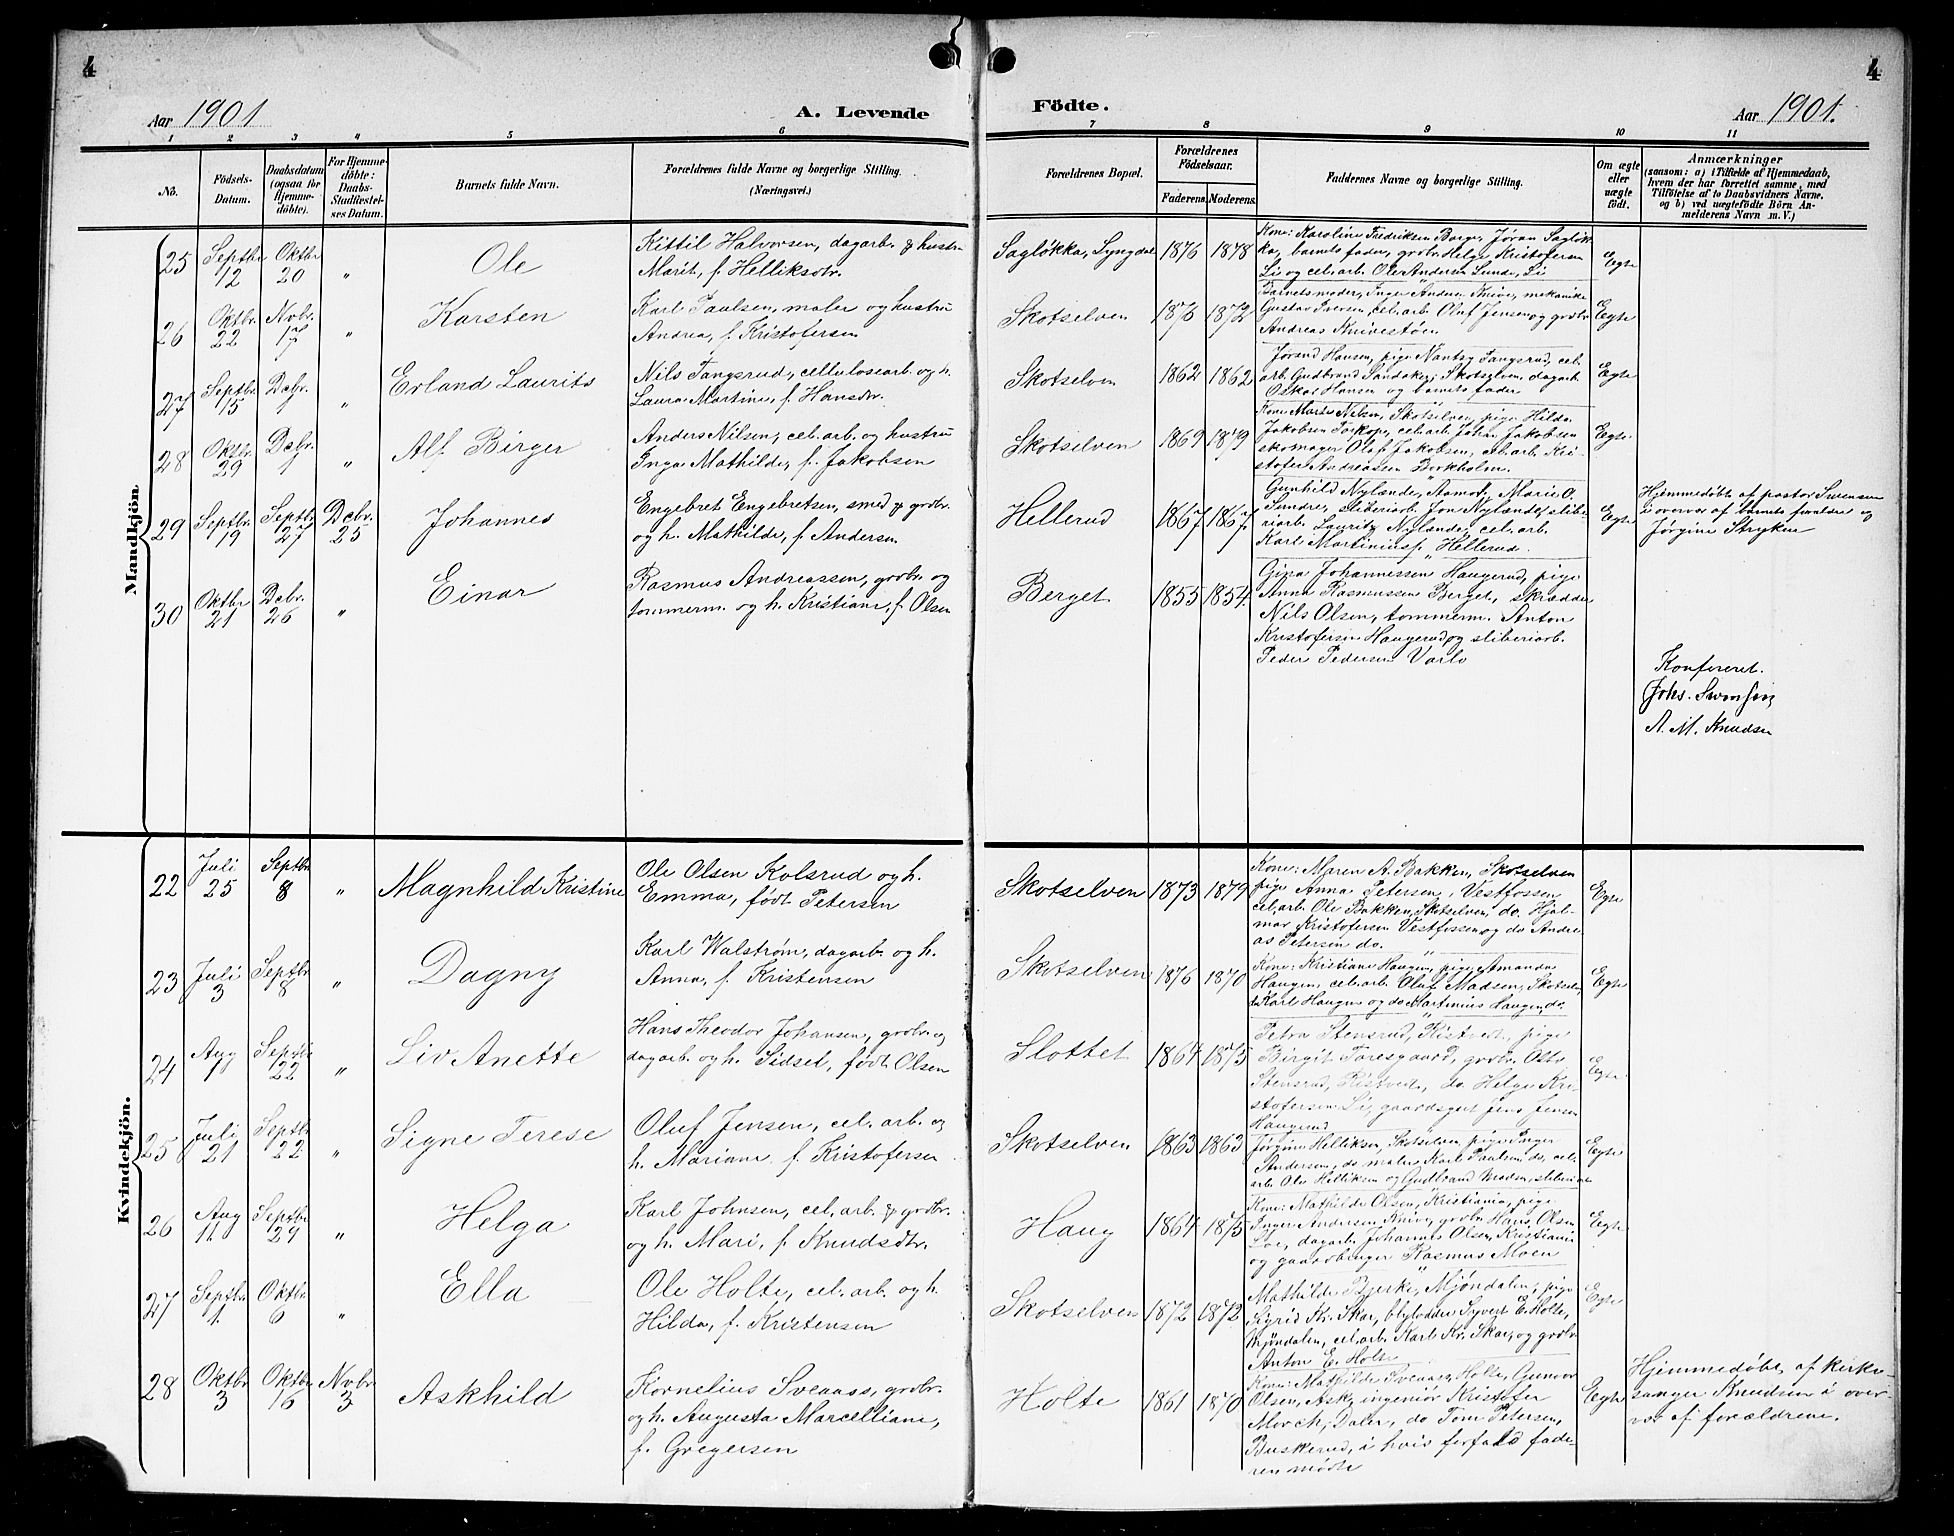 4
4
Aar 1901
A. Levende
Födte.
Aar 1901.
1 2 3 4 5 6 7 8 9 10 11
No.
Födsels-
Datum.
Daabsdatum
(ogsaa for
Hjemme-
döbte).
For Hjemme-
döbte:
Daabs-
Stadfæstel-
ses Datum.
Barnets fulde Navn.
Forældrenes fulde Navne og borgerlige Stilling.
(Næringsvei.)
Forældrenes Bopæl.
Forældrenes
Födselsaar.
Faderens. Moderens.
Faddernes Navne og borgerlige Stilling.
Om ægte
eller
uægte
födt.
Anmærkninger
(saasom: a) i Tilfælde af Hjemmedaab,
hvem der har forrettet samme, med
Tilföielse af to Daabsvidners Navne,
og b) ved uægtefödte Börn An-
melderens Navn m. V.)
Mandkjön
25 Septbr 12 Oktbr 20 " Ole
Kittil Halvorsen, dagarb. & hustru
Marit, f. Helliksdtr.
Sagløkka, Lyngdal 1876 1878
Kone: Karoline Fredriksen Borge, Jøran Sagløk-
ka, barnets fader, grdbr. Helge Kristofersen
Li og cel. arb. Ole Andersen Lunde, Li
Egte
26 Oktbr. 22 Nvbr. 17 " Karsten
Karl Paulsen, maler og hustru
Andrea, f. Kristofersen
Skotselven 1876 1872
Barnets moder, Inger Andrea Knive, mekanike
Gustav Iversen, cel. arb. Oluf Jensen og grdbr.
Andreas Knivestøen
Egte
27 Septbr. 15 Dcbr. 1 " Erland Laurits
Nils Tangsrud, cellulosearb. og h.
Laura Martine, f. Hansdtr.
Skotselven 1862 1862
Jørand Hansen, pige Nantsy Tangsrud, cel.
arb. Gudbrand Sandaker, Skotselven, dagarb.
Oskar Hansen og barnets fader
Egte
28 Oktbr. 29 Dcbr. 1 " Alf Birger
Anders Nilsen, cel. arb. og hustru
Inga Mathilde, f. Jakobsen
Skotselven 1869 1879
Kone Marte Nilsen, Skotselven, pige Hilda
Jakobsen Torkop, cel. arb. Johan Jakobsen
skomager Olaf Jakobsen, cel. arb. Kri-
stofer Andreassen Berkholm.
Egte
29 Septbr. 19 Septbr. 27 Dcbr. 25 Johannes
Engebret Engebretsen, smed & grdbr.
og h. Mathilde, f. Andersen
Hellerud 1867 1867
Gunhild Nylænde, Aamot, Marie O.
Sundre, sliberiarb. Jon Nylænde, slibe-
riarb. Lauritz Nylænde, cel. arb.
Karl Martiniusen, Hellerud.
Egte
Hjemmedøbt af pastor Svensen
i overvær af barnets forældre og
Jørgine Stryken
30 Oktbr 21 Dcbr. 26 " Einar
Rasmus Andreassen, grdbr. og
tømmerm. og h. Kristiane, f. Olsen
Berget 1855 1854
Gina Johannessen Haugerud, pige
Anna Rasmussen Berget, skrædder
Nils Olsen, tømmerm. Anton
Kristofersen Haugerud og sliberiarb.
Peder Pedersen Varlo
Konfereret.
Johs. Svensen
A. M. Knudsen
Kvindekjön.
22 Juli 25 Septbr 8 " Magnhild Kristine
Ole Olsen Kolsrud og h.
Emma, født Petersen
Skotselven 1873 1879
Kone: Maren A. Bakken, Skotselven
pige Anna Petersen, Vestfossen,
cel. arb. Ole Bakken, Skotselven, do. Hjal-
mar Kristofersen Vestfossen og do Andre-
as Petersen do.
Egte
23 Juli 3 Septbr 8 " Dagny
Karl Walstrøm, dagarb. og h.
Anna, f. Kristensen
Skotselven 1876 1870
Kone: Kristiane Haugen, pige Amanda
Haugen, cel. arb. Oluf Madsen, Skotselven,
do Karl Haugen og do Martinius Haugen, do.
Egte
24 Aug 1 Septbr 22 " Liv Anette
Hans Theodor Johansen, grdbr. og
dagarb. og h. Sidsel, født Olsen
Slottet 1864 1875
Petra Stensrud, Ristvedt, pige
Birgit Foresgaard, grdbr. Olbr
Stensrud, Ristvedt, do. Helge Kri-
stofersen Li, gaardsgut Jens Jensen
Haugerud
Egte
25 Juli 21 Septbr. 22 " Signe Terese
Oluf Jensen, cel. arb. og
h. Mariane f. Kristofersen
Skotselven 1863 1863
Jørgine Helliksen, Skotselven, pige Inger
Andersen, do, maler Karl Paulsen do, cel.
arb. Ole Helliksen og Gudbrand Moden, sliberiarb
Egte
26 Aug 11. Septbr 29 " Helga
Karl Johnsen, cel. arb. & grdbr.
og h. Mari, f. Knudsdtr.
Haug 1864 1875
Kone: Mathilde Olsen, Kristiania, pige
Inger Andersen Knive, grdbr. Hans Olsen
Loe, dagarb. Johannes Olsen, Kristiania
og gaardbruger Rasmus Moen
Egte
27 Septbr 1. Oktbr 6 " Ella
Ole Holte, cel. arb. og h.
Hilda, f. Kristensen
Skotselven 1872 1872
Mathilde Bjerke, Mjøndalen, pige
Sigrid Kr. Skar, Syvert E. Holte,
Mjøndalen, cel. arb. Karl Kr. Skar, og grdbr.
Anton E. Holte
Egte
28 Oktbr 3 Oktbr 16 Nvbr 3 Askhild
Kornelius Sveaass, grdbr.
og h. Augusta Marcelliane,
f. Gregersen
Holte 1861 1870
Kone: Mathilde Sveaass, Holte, Gunvor
Olsen, Ask, ingeniør Kristofer
Morch, Daler, do Tom Petersen,
Buskerud, i hvis forfald fade-
ren mødte
Egte
Hjemmedøbt af kirke-
sanger Knudsen i over-
vær af forældrene.